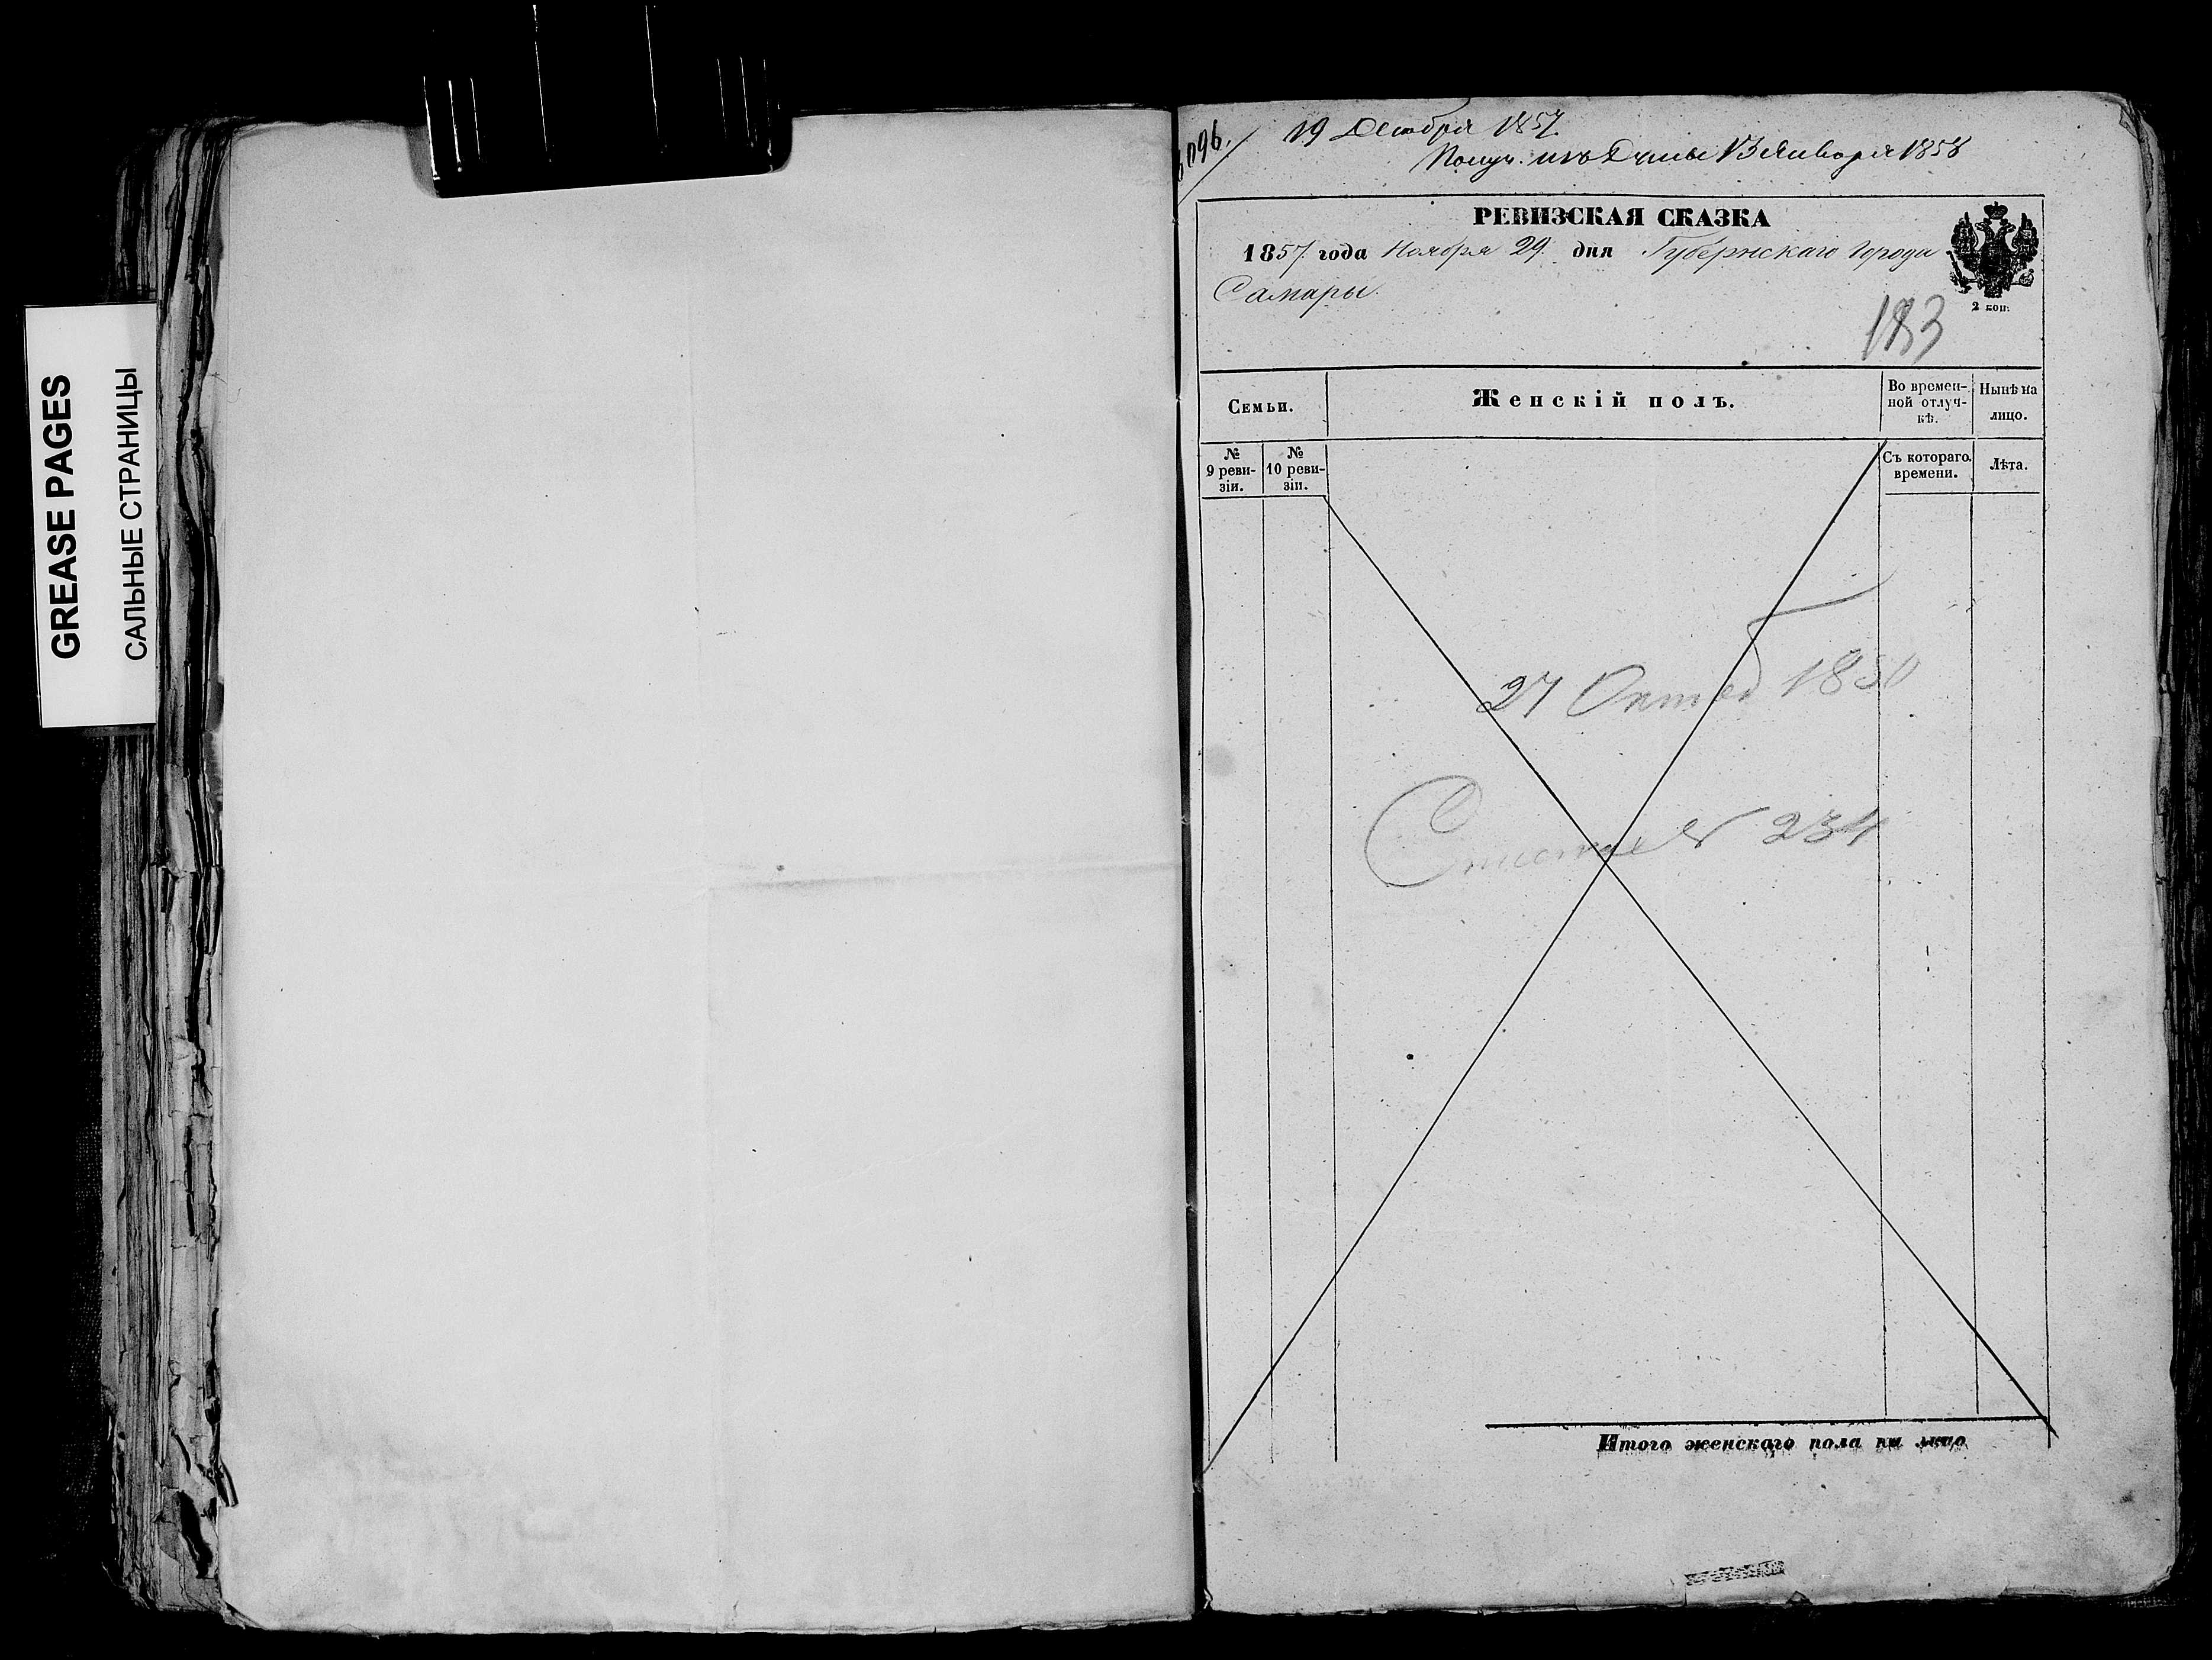 GREASE PAGES
САЛЬНЫЕ СТРАНИЦЫ
096.
19 Декабря 1857.
Получ. изъ Думы 13 Января 1858
РЕВИЗСКАЯ СКАЗКА
1857. года Ноября 29. дня Губернскаго города
Самары.
2 коп.
183
Семьи.
Женскій полъ.
Во времен-
ной отлуч-
кѣ.
Нынѣ на
лицо.
№
9 реви-
зіи.
№
10 реви-
зіи.
Съ котораго
времени.
Лѣта.
27 Октяб 185
№ 234
Итого женскаго пола на лицо